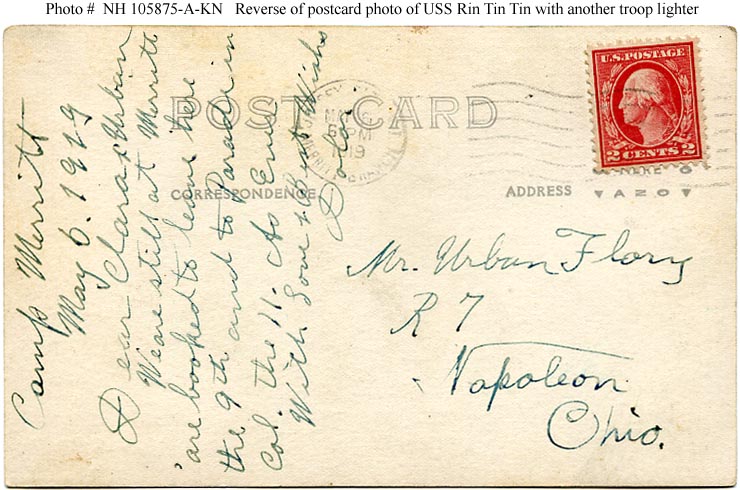 Photo # NH 105875-A-KN Reverse of postcard photo of USS Rin Tin Tin with another troop lighter
POST CARD
CORRESPONDENCE
ADDRESS
AZO
U.S. POSTAGE
2 CENTS 2
6 PM
1919
Camp Merritt
May 6. 1919
Dear Clara & Urban
We are still at Merritt
are booked to leave here
the 9th and to Parade in
Col. the 11. As Ever
With Love & Best Wishs
Mr. Urban Flory
R 7
Napoleon
Ohio.